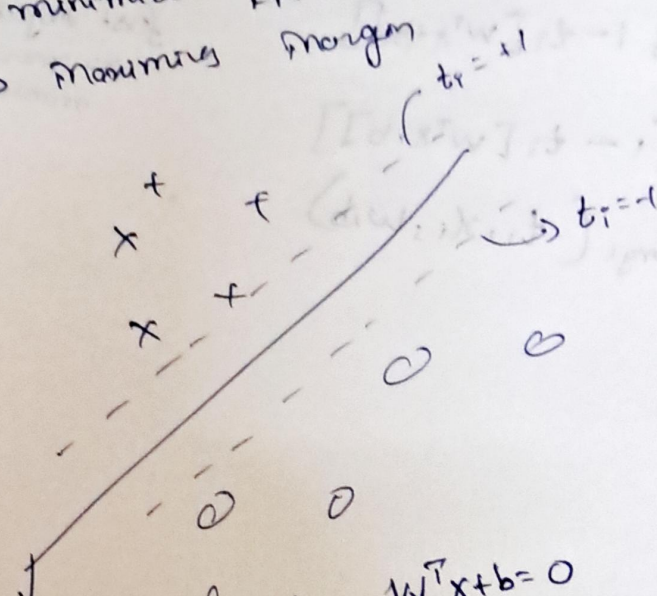 maximizes margin
ti = +1
ti = -1
wᵀx+b=0